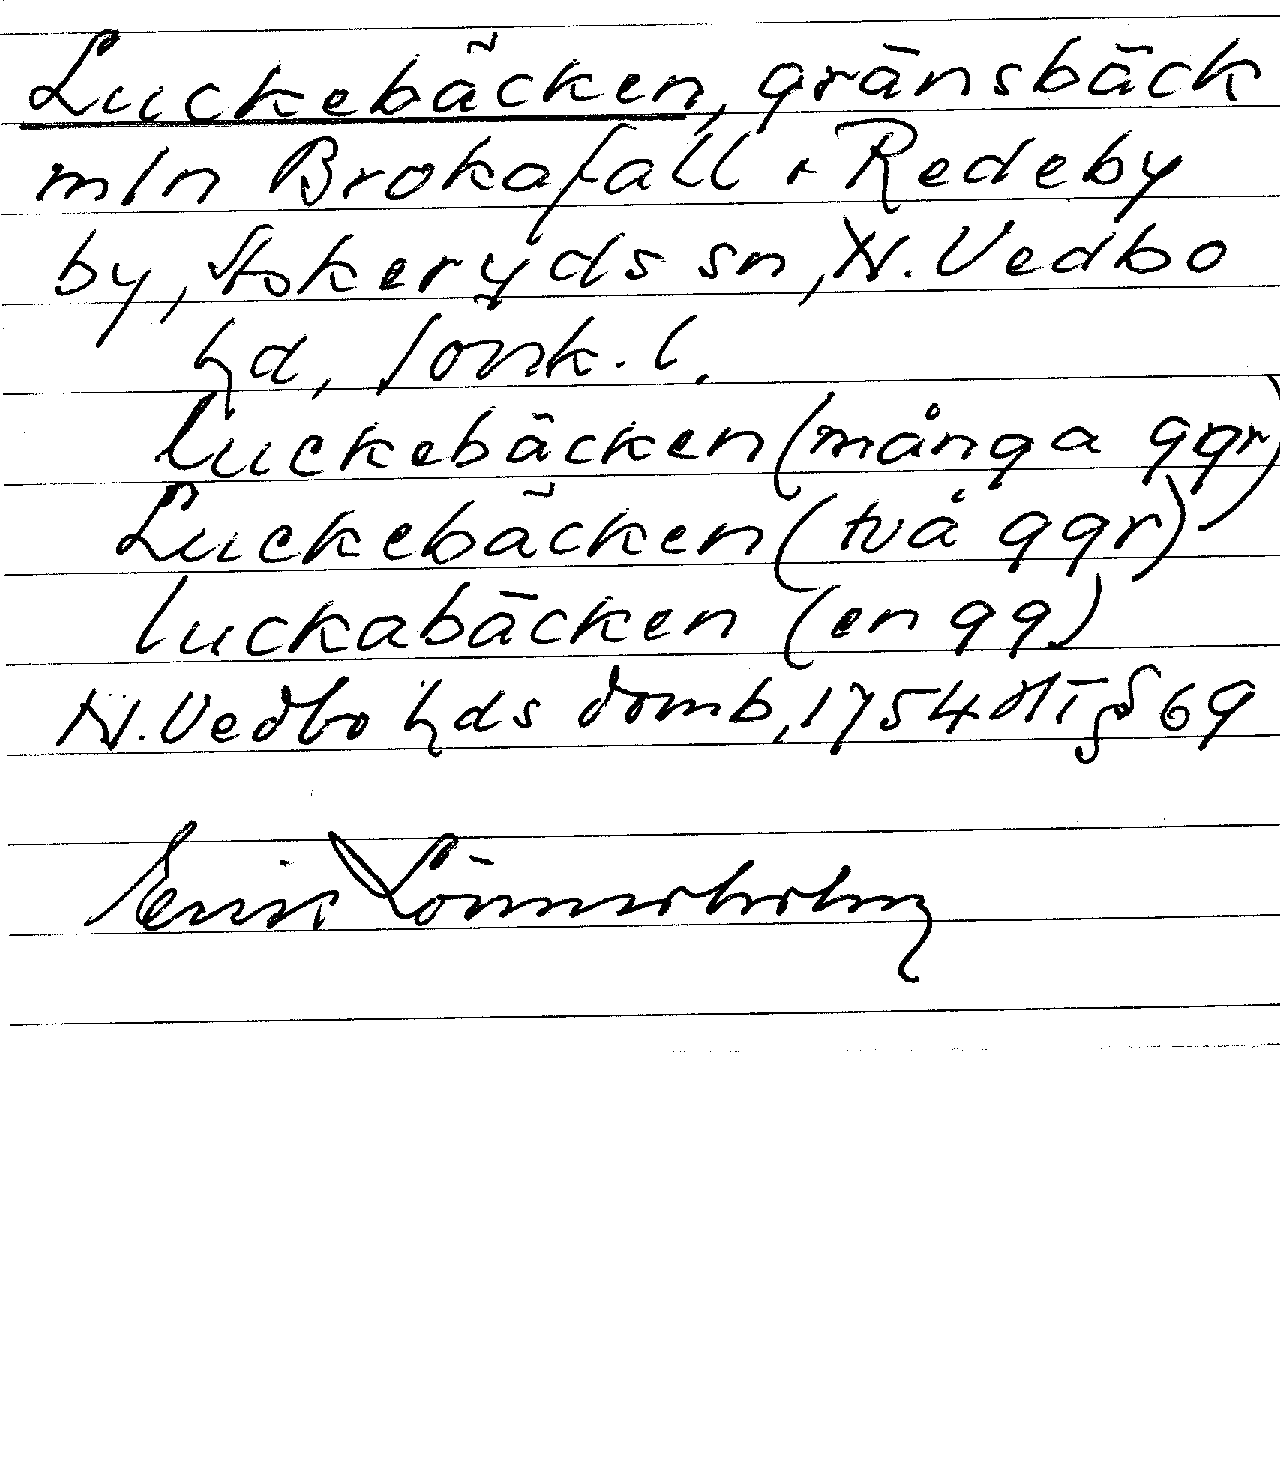 Luckebäcken, gränsbäck
mln Brokafall + Redeby
by, Askeryds sn, N. Vedbo
hd, Jönk. l.
luckebäcken (många ggr)
Luckebäcken (två ggr)
luckabäcken (en gg)
N. Vedbo hds domb, 1754 HT § 69
Erik Lönnerholm